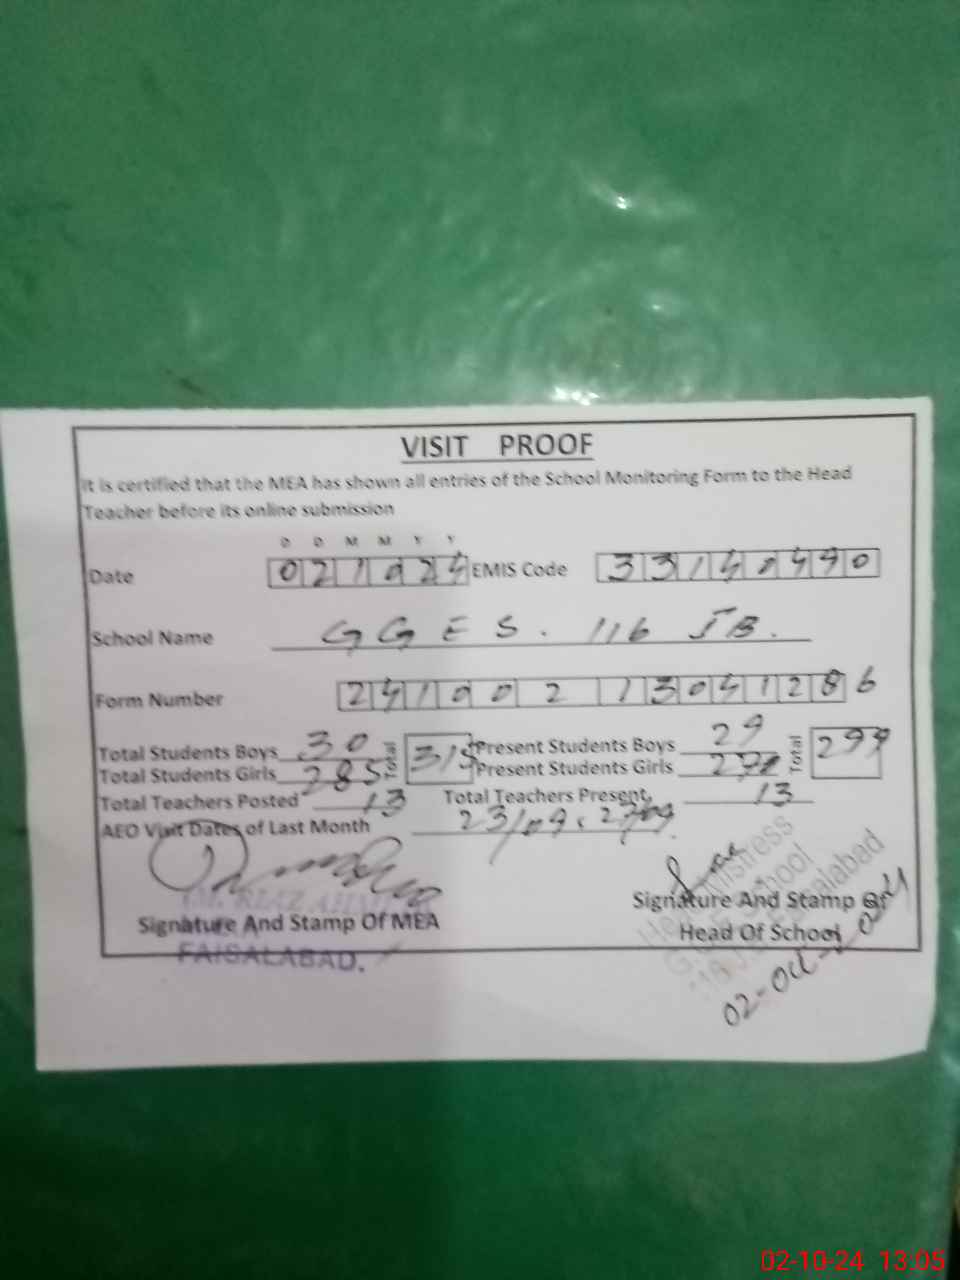 VISIT PROOF
It is certified that the MEA has shown all entries of the School Monitoring Form to the Head
Teacher before its online submission
D D M M Y Y
Date 021024 EMIS Code 33140490
School Name GGES. 116 JB.
Form Number 241002 13041286
Total Students Boys 30 Total 315 Present Students Boys 29 Total 299
Total Students Girls 285 Present Students Girls
Total Teachers Posted 13 Total Teachers Present 13
AEO Visit Dates of Last Month 23/09, 27/09
M. RIAZ AHMAD
Signature And Stamp Of MEA
FAISALABAD.
Signature And Stamp Of
Head Of School
Headmistress
G.G.E. School
116 J.B. Faisalabad
02-Oct-2024
02-10-24 13:05